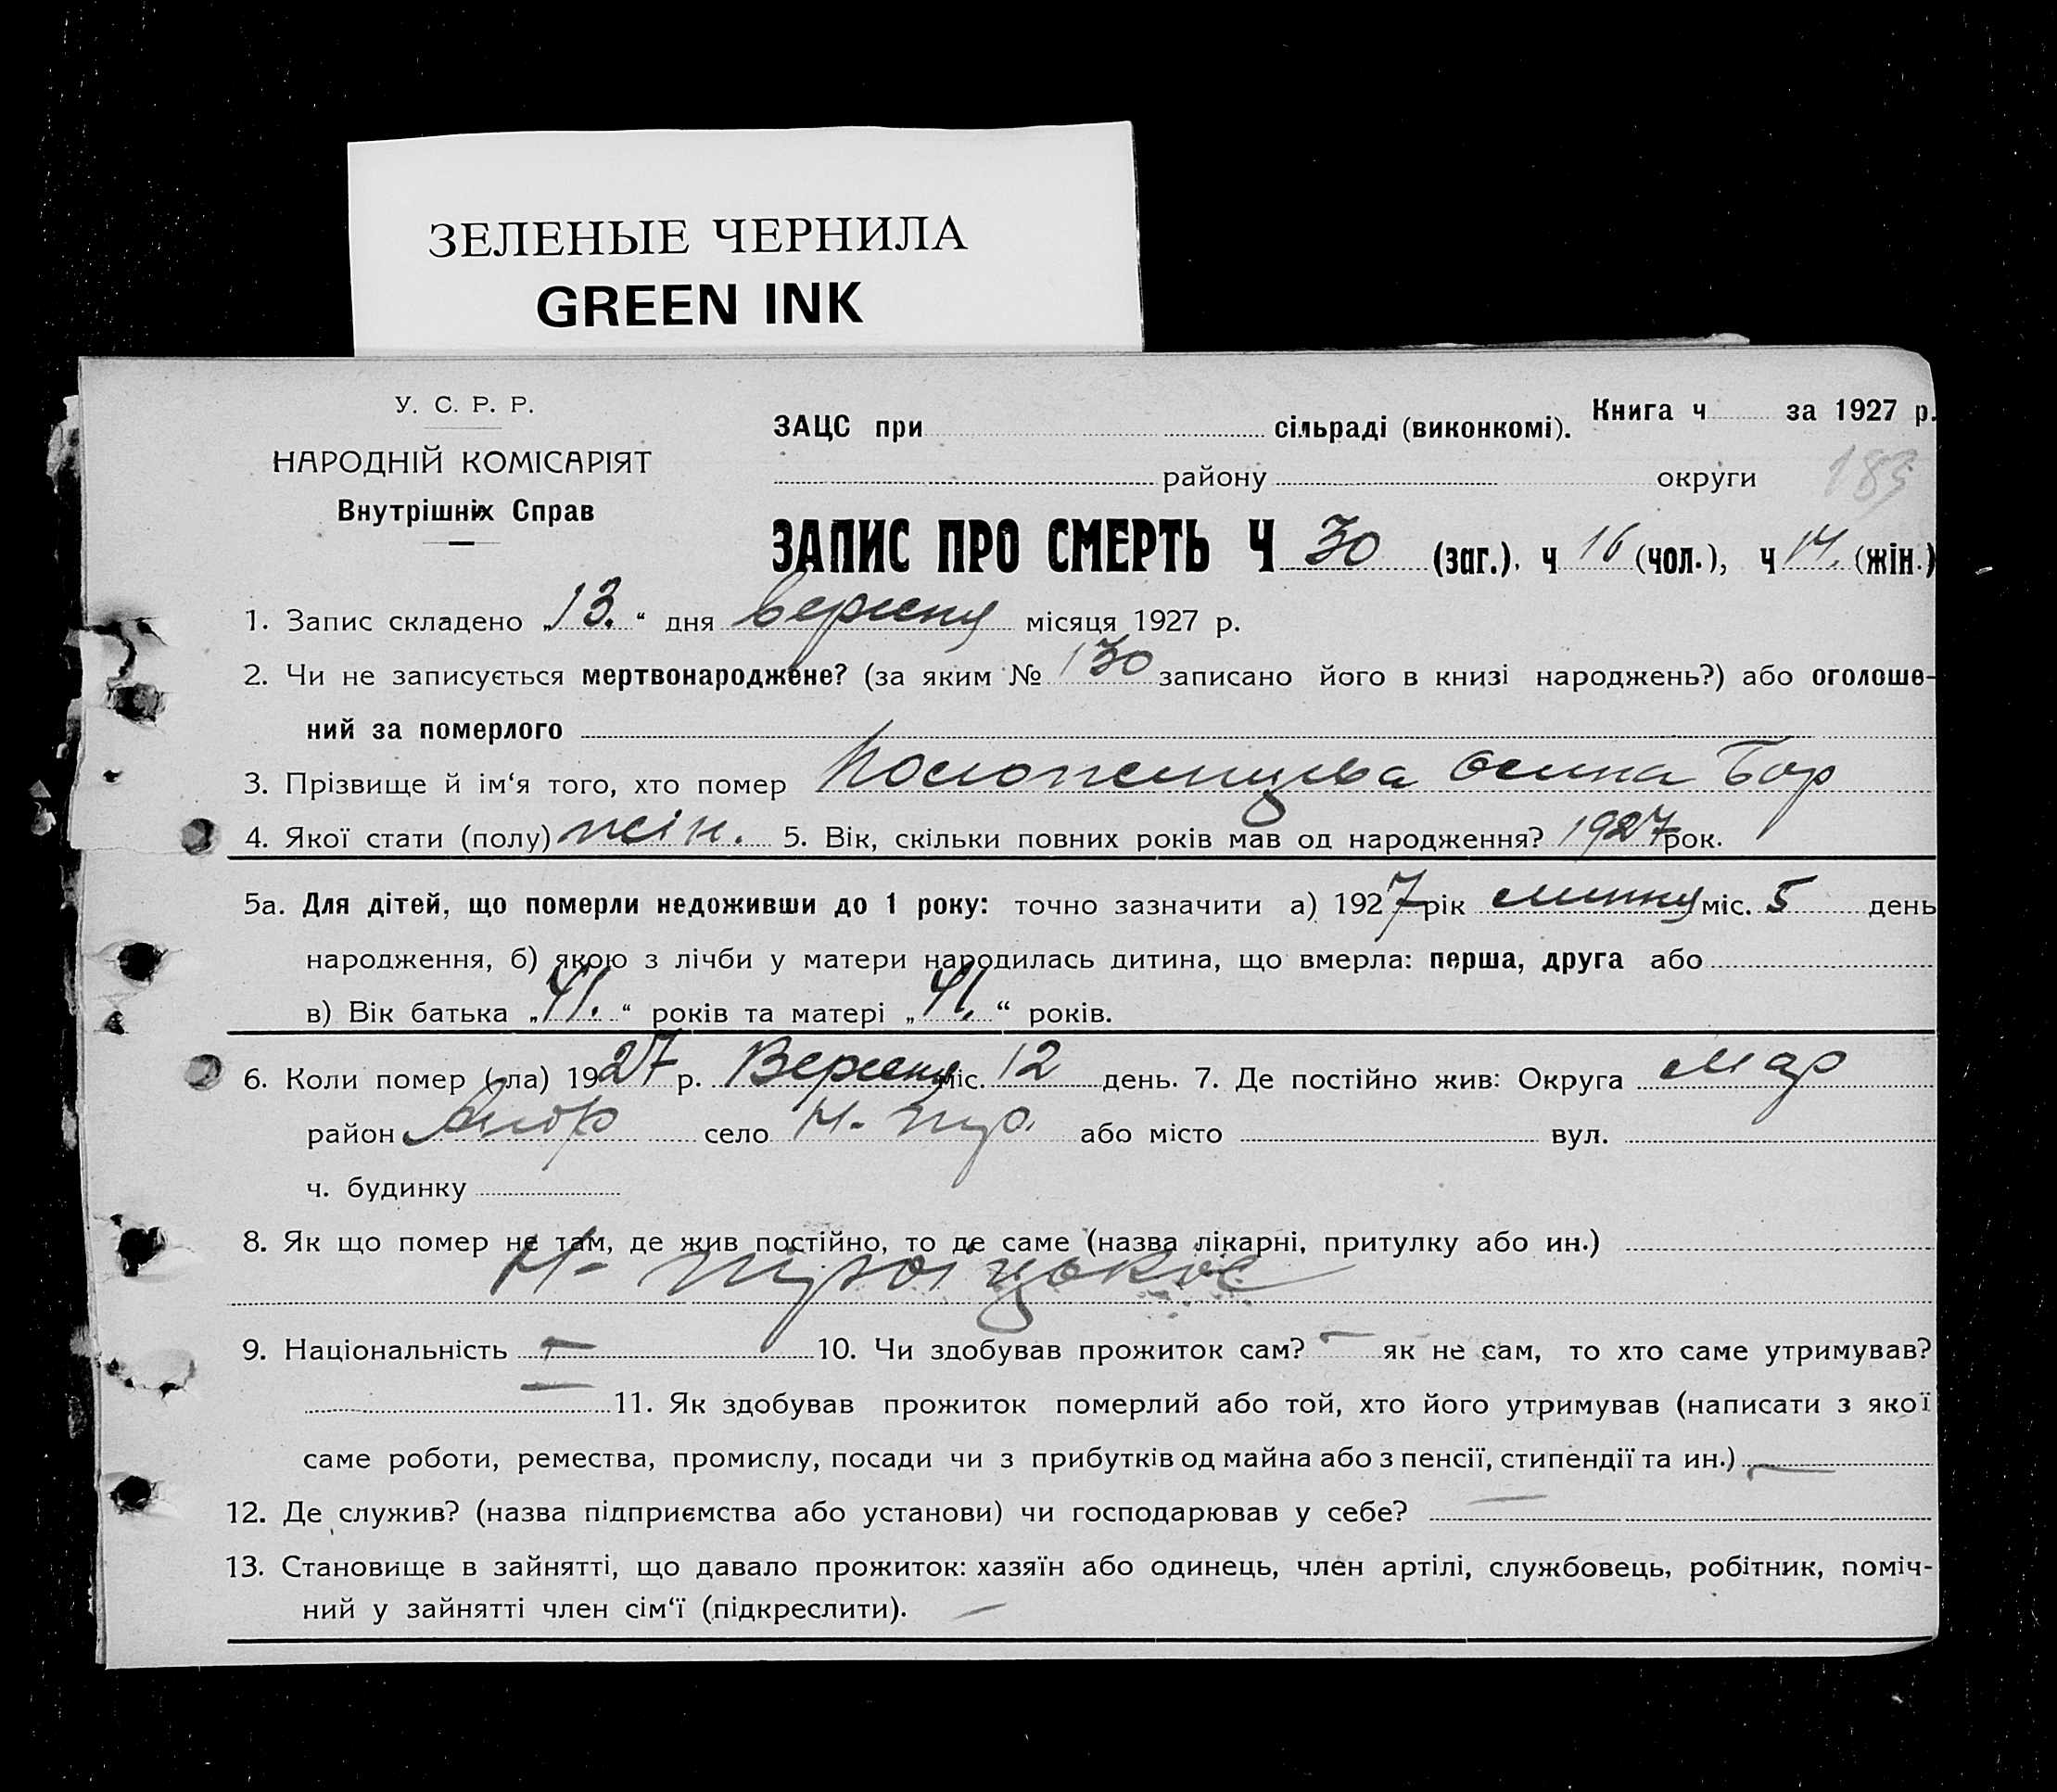 ЗЕЛЕНЫЕ ЧЕРНИЛА
GREEN INK
У. С. Р. Р.
НАРОДНІЙ КОМІСАРІЯТ
Внутрішніх Справ
Книга ч за 1927 р.
ЗАЦС при сільраді (виконкомі).
району округи
183
ЗАПИС ПРО СМЕРТЬ Ч 30 (заг.). ч 16 (чол.), ч 14. (жін.)
1. Запис складено „13.“ дня вересня місяця 1927 р.
2. Чи не записується мертвонароджене? (за яким № 130 записано його в книзі народжень?) або оголоше-
ний за померлого
3. Прізвище й ім‘я того, хто помер
4. Якої стати (полу) жін. 5. Вік, скільки повних років мав од народження? 1927 рок.
5а. Для дітей, що померли недоживши до 1 року: точно зазначити а) 1927 рік міс. 5 день
народження, б) якою з лічби у матери народилась дитина, що вмерла: перша, друга або
в) Вік батька „41.“ років та матері „41.“ років.
6. Коли помер (-ла) 1927 р. Вересня міс. 12 день. 7. Де постійно жив: Округа Мар
район село Н. або місто вул.
ч. будинку
8. Як що помер не там, де жив постійно, то де саме (назва лікарні, притулку або ин.)
Н-
9. Національність — 10. Чи здобував прожиток сам? — як не сам, то хто саме утримував?
— 11. Як здобував прожиток померлий або той, хто його утримував (написати з якої
саме роботи, ремества, промислу, посади чи з прибутків од майна або з пенсії, стипендії та ин.) —
12. Де служив? (назва підприємства або установи) чи господарював у себе? —
13. Становище в зайнятті, що давало прожиток: хазяїн або одинець, член артілі, службовець, робітник, поміч-
ний у зайнятті член сім‘ї (підкреслити). —